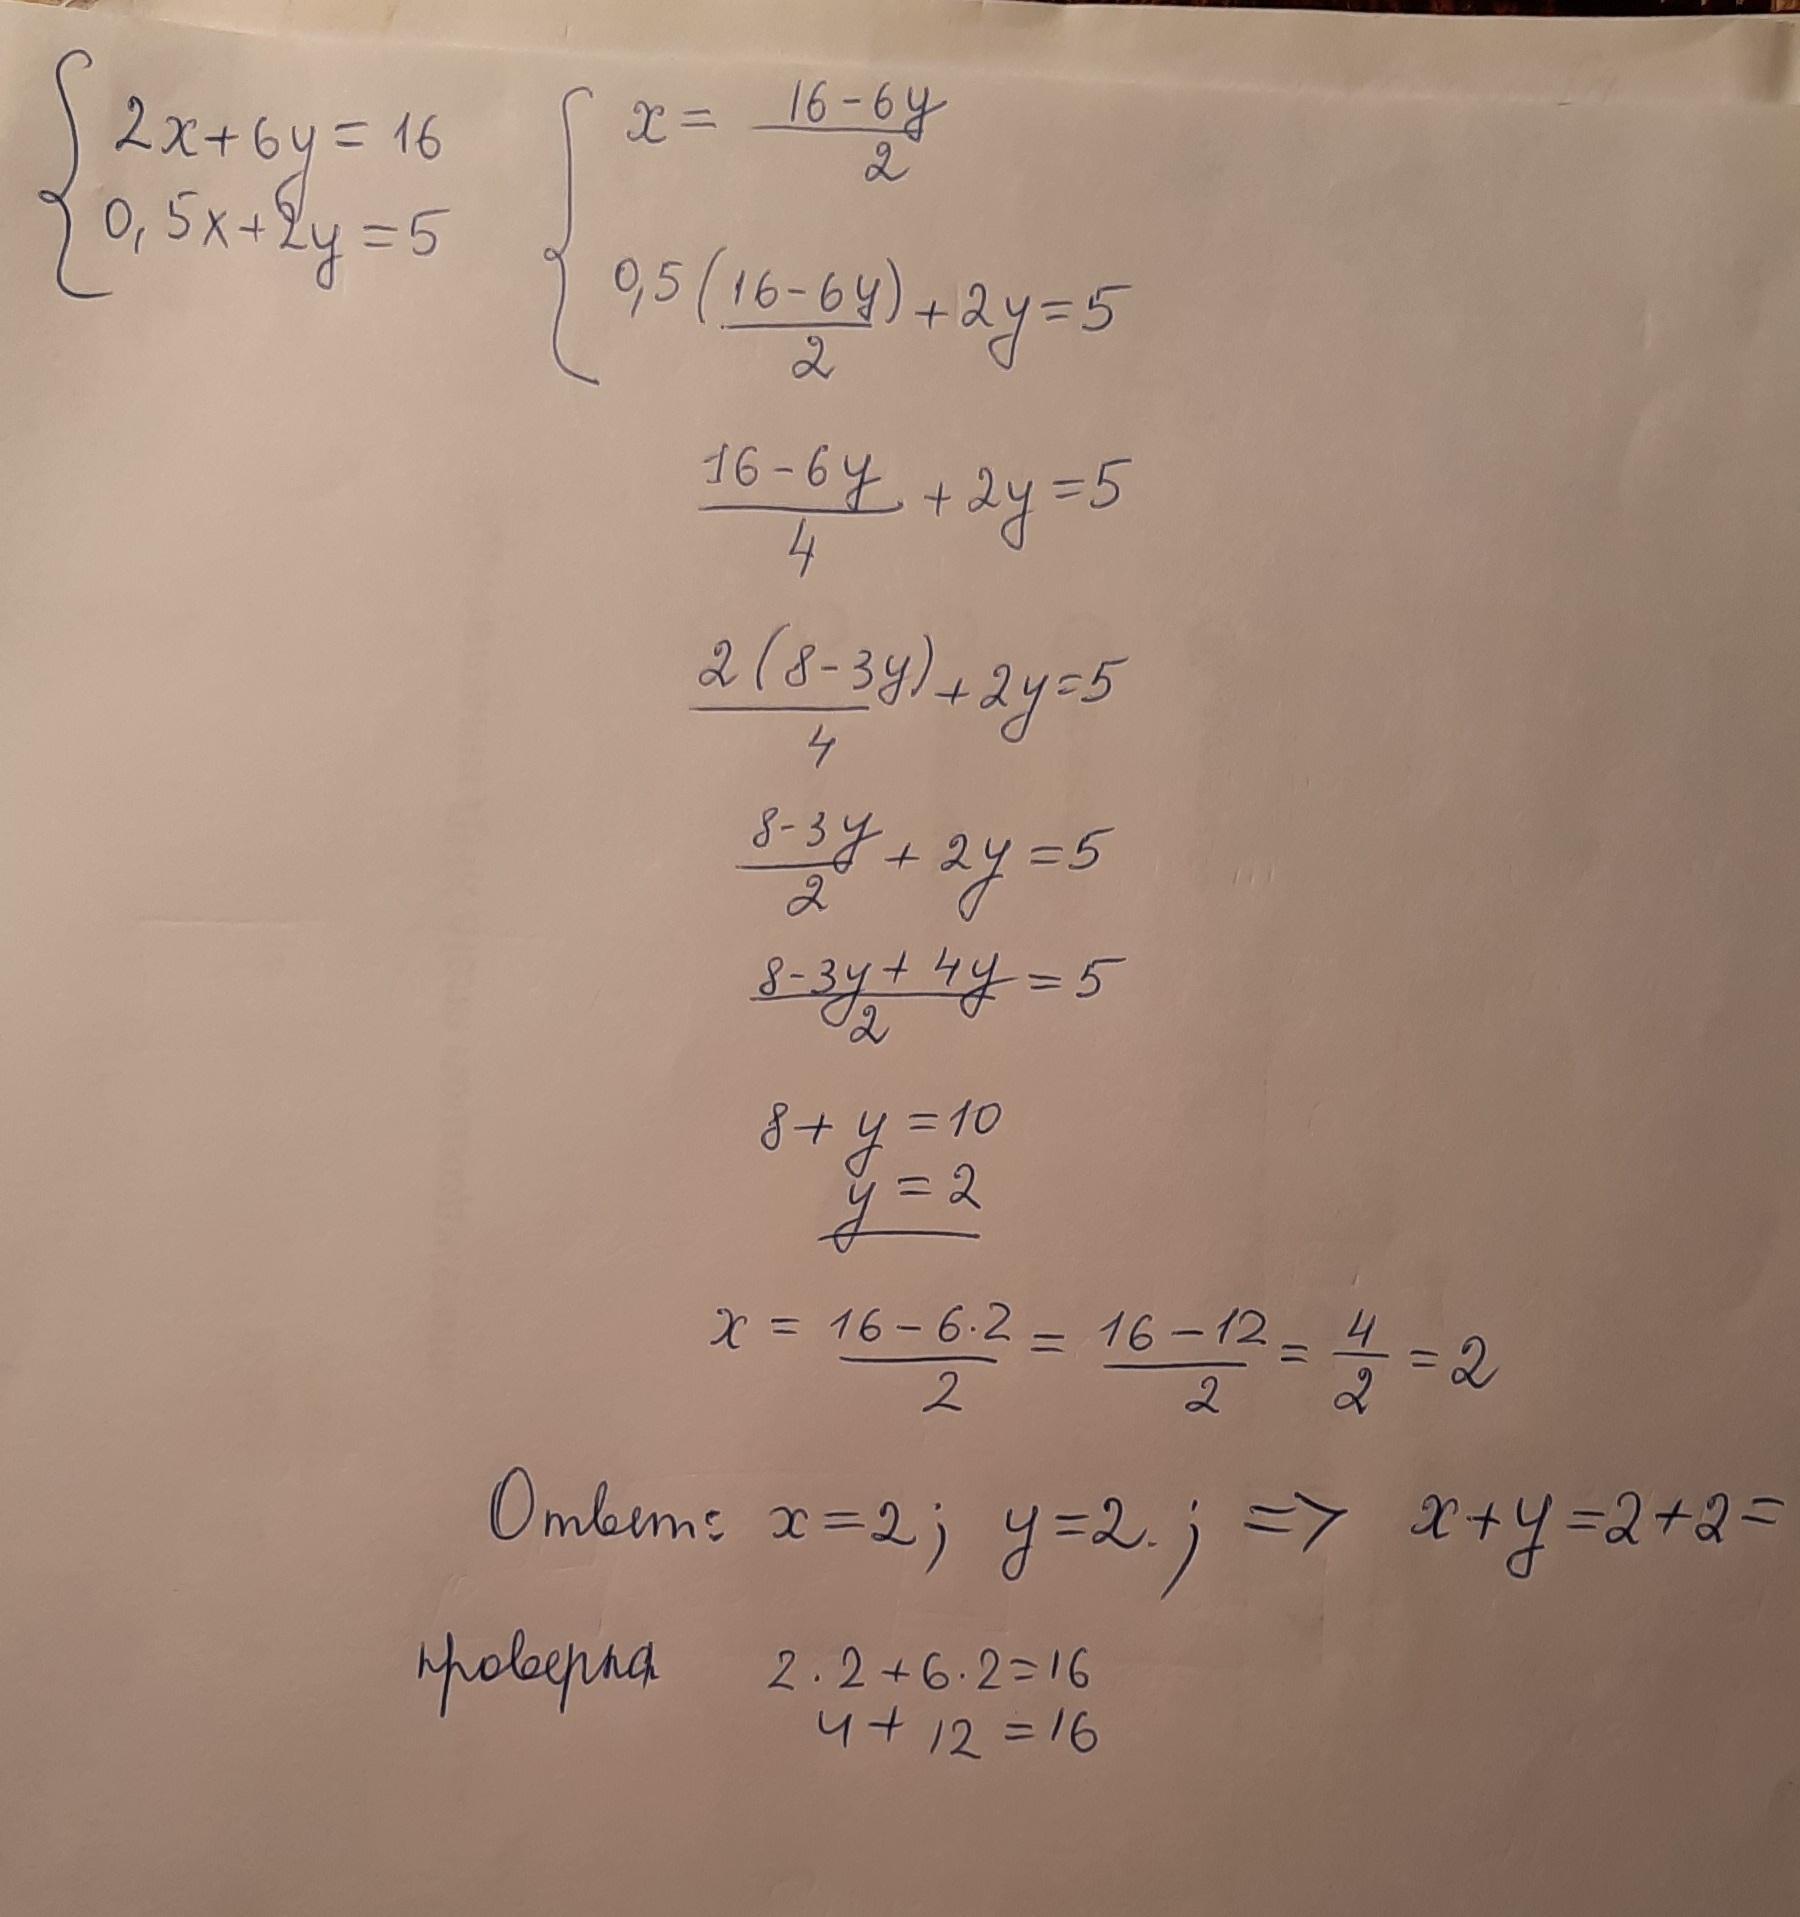 2x+6y=16
0,5x+2y=5
x = (16-6y)/2
0,5((16-6y)/2)+2y=5
(16-6y)/4 + 2y = 5
2(8-3y)/4 + 2y = 5
(8-3y)/2 + 2y = 5
(8-3y+4y)/2 = 5
8+y=10
y=2
x = (16-6·2)/2 = (16-12)/2 = 4/2 = 2
Ответ: x=2; y=2.; => x+y=2+2=
проверка 2·2+6·2=16
4+12=16